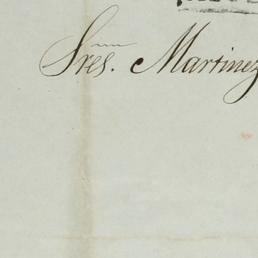 Sres. Martinez